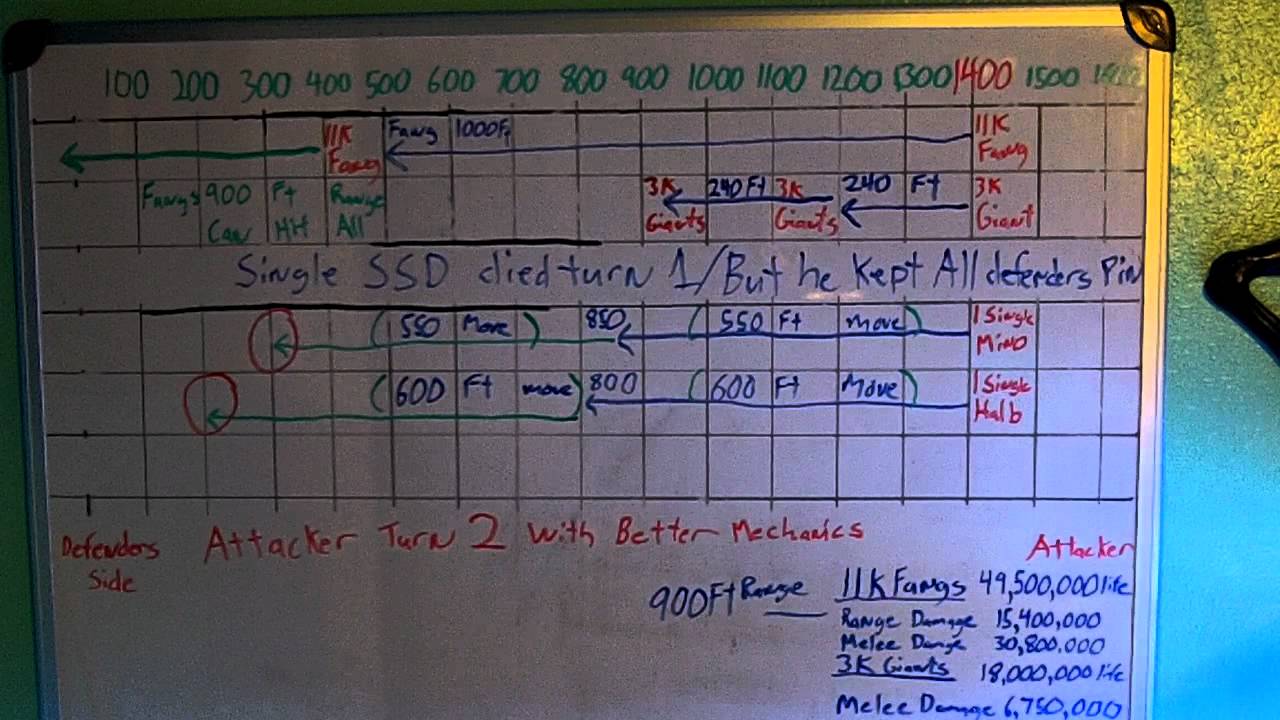 100 200 300 400 500 600 700 800 900 1000 1100 1200 1300 1400 1500
11K Fang 1000Ft 11K
Fang Fang
Fangs 900 Ft Range 3K 240 Ft 3K 240 Ft 3K
Can Hit All Giants Giants Giant
Single SSD died turn 1/But he Kept All defenders Pin
(550 Move) 850 (550 Ft move) 1 Single
Mino
(600 Ft move) 800 (600 Ft Move) 1 Single
Halb
Defenders Attacker Turn 2 with Better Mechanics Attacker
Side
900Ft Range 11K Fangs 49,500,000 life
Range Damage 15,400,000
Melee Damge 30,800.000
3K Giants 18,000,000 life
Melee Damage 6,750,000